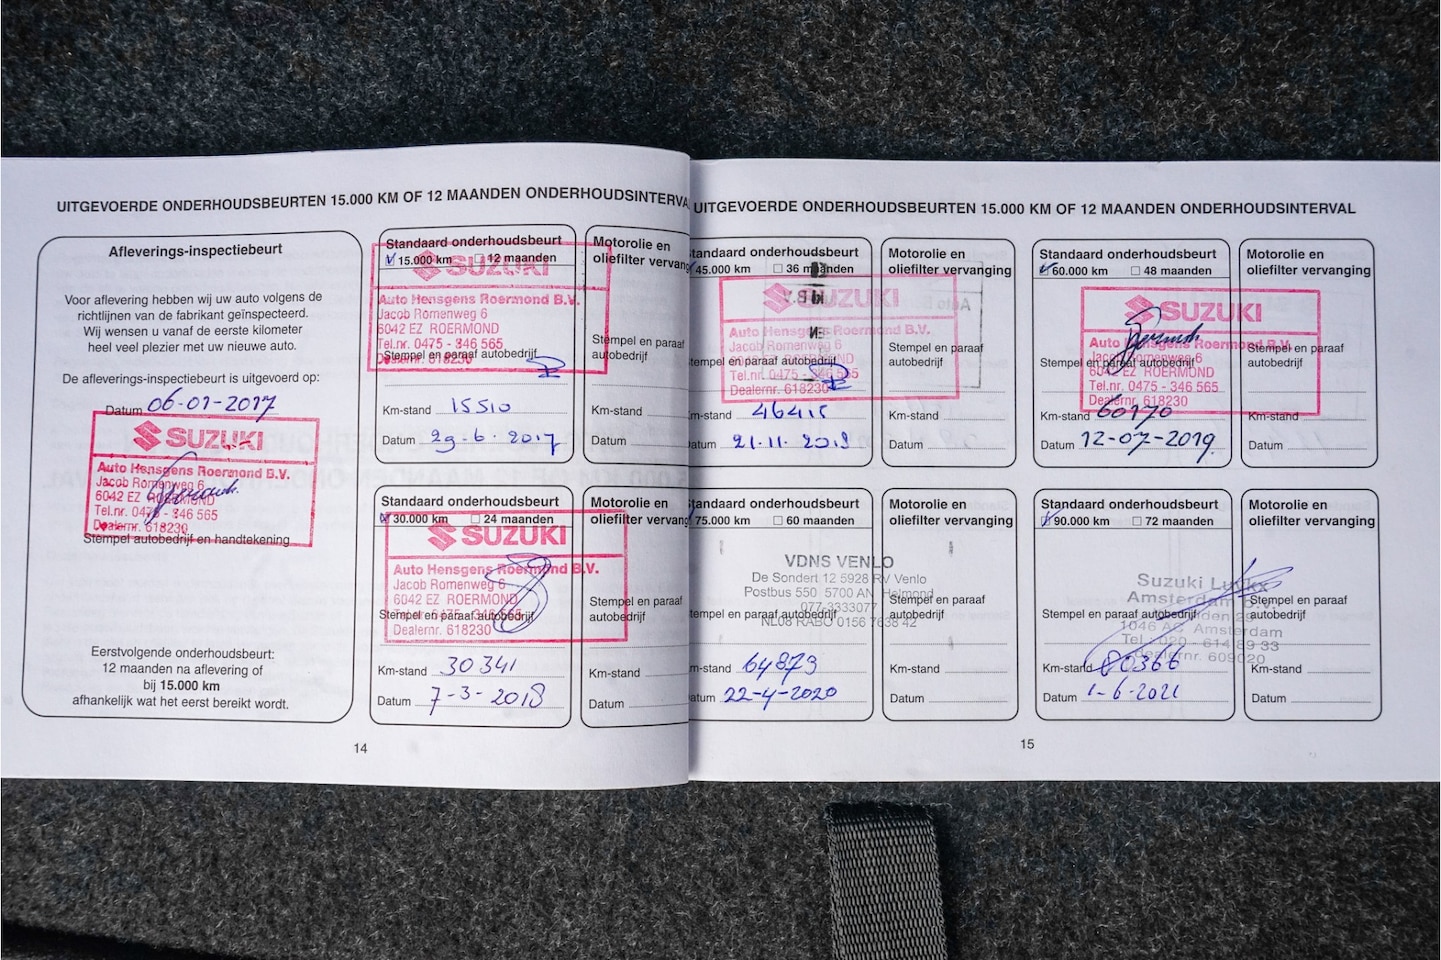 UITGEVOERDE ONDERHOUDSBEURTEN 15.000 KM OF 12 MAANDEN ONDERHOUDSINTERVA
Afleverings-inspectiebeurt
Voor aflevering hebben wij uw auto volgens de
richtlijnen van de fabrikant geïnspecteerd.
Wij wensen u vanaf de eerste kilometer
heel veel plezier met uw nieuwe auto.
De afleverings-inspectiebeurt is uitgevoerd op:
Datum 06-01-2017
SUZUKI
Auto Hensgens Roermond B.V.
Jacob Romenweg 6
6042 EZ ROERMOND
Tel.nr. 0475 - 346 565
Dealernr. 618230
Stempel autobedrijf en handtekening
Eerstvolgende onderhoudsbeurt:
12 maanden na aflevering of
bij 15.000 km
afhankelijk wat het eerst bereikt wordt.
Standaard onderhoudsbeurt
15.000 km 12 maanden
SUZUKI
Auto Hensgens Roermond B.V.
Jacob Romenweg 6
6042 EZ ROERMOND
Tel.nr. 0475 - 346 565
Stempel en paraaf autobedrijf
Dealernr. 618230
Km-stand 15510
Datum 29-6-2017
Motorolie en
oliefilter vervang
Stempel en paraaf
autobedrijf
Km-stand
Datum
Standaard onderhoudsbeurt
30.000 km 24 maanden
SUZUKI
Auto Hensgens Roermond B.V.
Jacob Romenweg 6
6042 EZ ROERMOND
Tel.nr. 0475 - 346 565
Stempel en paraaf autobedrijf
Dealernr. 618230
Km-stand 30341
Datum 7-3-2018
Motorolie en
oliefilter vervang
Stempel en paraaf
autobedrijf
Km-stand
Datum
14
UITGEVOERDE ONDERHOUDSBEURTEN 15.000 KM OF 12 MAANDEN ONDERHOUDSINTERVAL
tandaard onderhoudsbeurt
45.000 km 36 maanden
SUZUKI
Auto Hensgens Roermond B.V.
Jacob Romenweg 6
6042 EZ ROERMOND
tempel en paraaf autobedrijf
Tel.nr. 0475 - 346 565
Dealernr. 618230
m-stand
atum
Motorolie en
oliefilter vervanging
Stempel en paraaf
autobedrijf
Km-stand
Datum
Standaard onderhoudsbeurt
60.000 km 48 maanden
SUZUKI
Auto Hensgens Roermond B.V.
Jacob Romenweg 6
Stempel en paraaf autobedrijf
6042 EZ ROERMOND
Tel.nr. 0475 - 346 565
Dealernr. 618230
Km-stand 60170
Datum 12-07-2019
Motorolie en
oliefilter vervanging
Stempel en paraaf
autobedrijf
Km-stand
Datum
tandaard onderhoudsbeurt
75.000 km 60 maanden
VDNS VENLO
De Sondert 12 5928 RV Venlo
Postbus 550 5700 AN Helmond
077-3333077
tempel en paraaf autobedrijf
NL08 RABO 0156 7638 42
m-stand 64873
atum 22-4-2020
Motorolie en
oliefilter vervanging
Stempel en paraaf
autobedrijf
Km-stand
Datum
Standaard onderhoudsbeurt
90.000 km 72 maanden
Suzuki Luykx
Amsterdam B.V.
Stempel en paraaf autobedrijf
1046 AC Amsterdam
Tel.: 020 - 614 89 33
dealernr. 609020
Km-stand 80366
Datum 1-6-2021
Motorolie en
oliefilter vervanging
Stempel en paraaf
autobedrijf
Km-stand
Datum
15